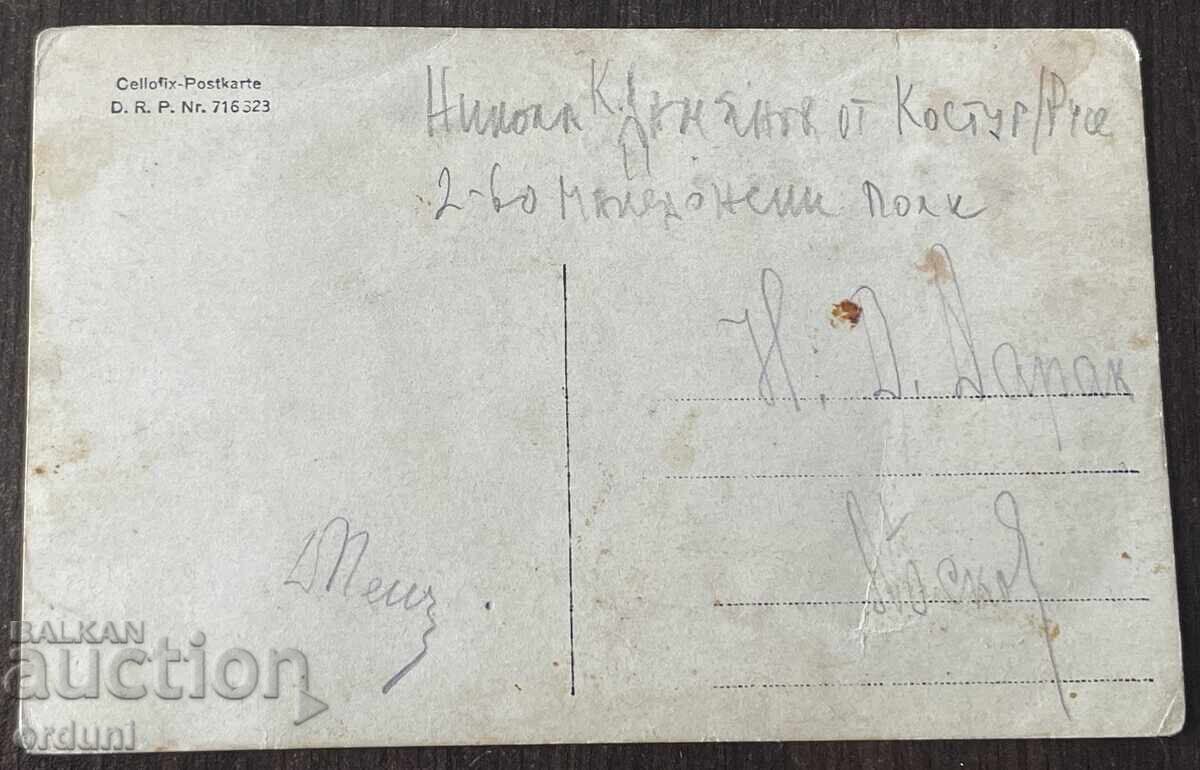 Cellofix-Postkarte
D. R. P. Nr. 716323
Никола К. Дамянов от Костур/Русе
2-во Македонски полк
Н. Д. Дарак
BALKAN
auction
orduni